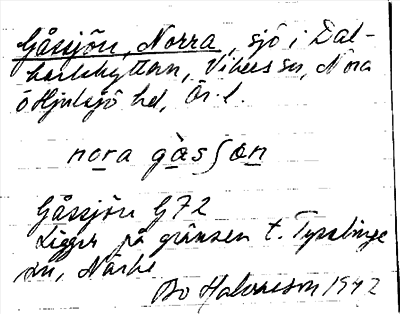 Gåssjön, Norra, sjö i Dal-
karlshyttan, Vikers sn, Nora
o Hjulsjö hd, Ör. l.
nora gåsʃon
Gåssjön G72
Ligger på gränsen t. Tysslinge
sn, Närke
Bo Halvarson 1942